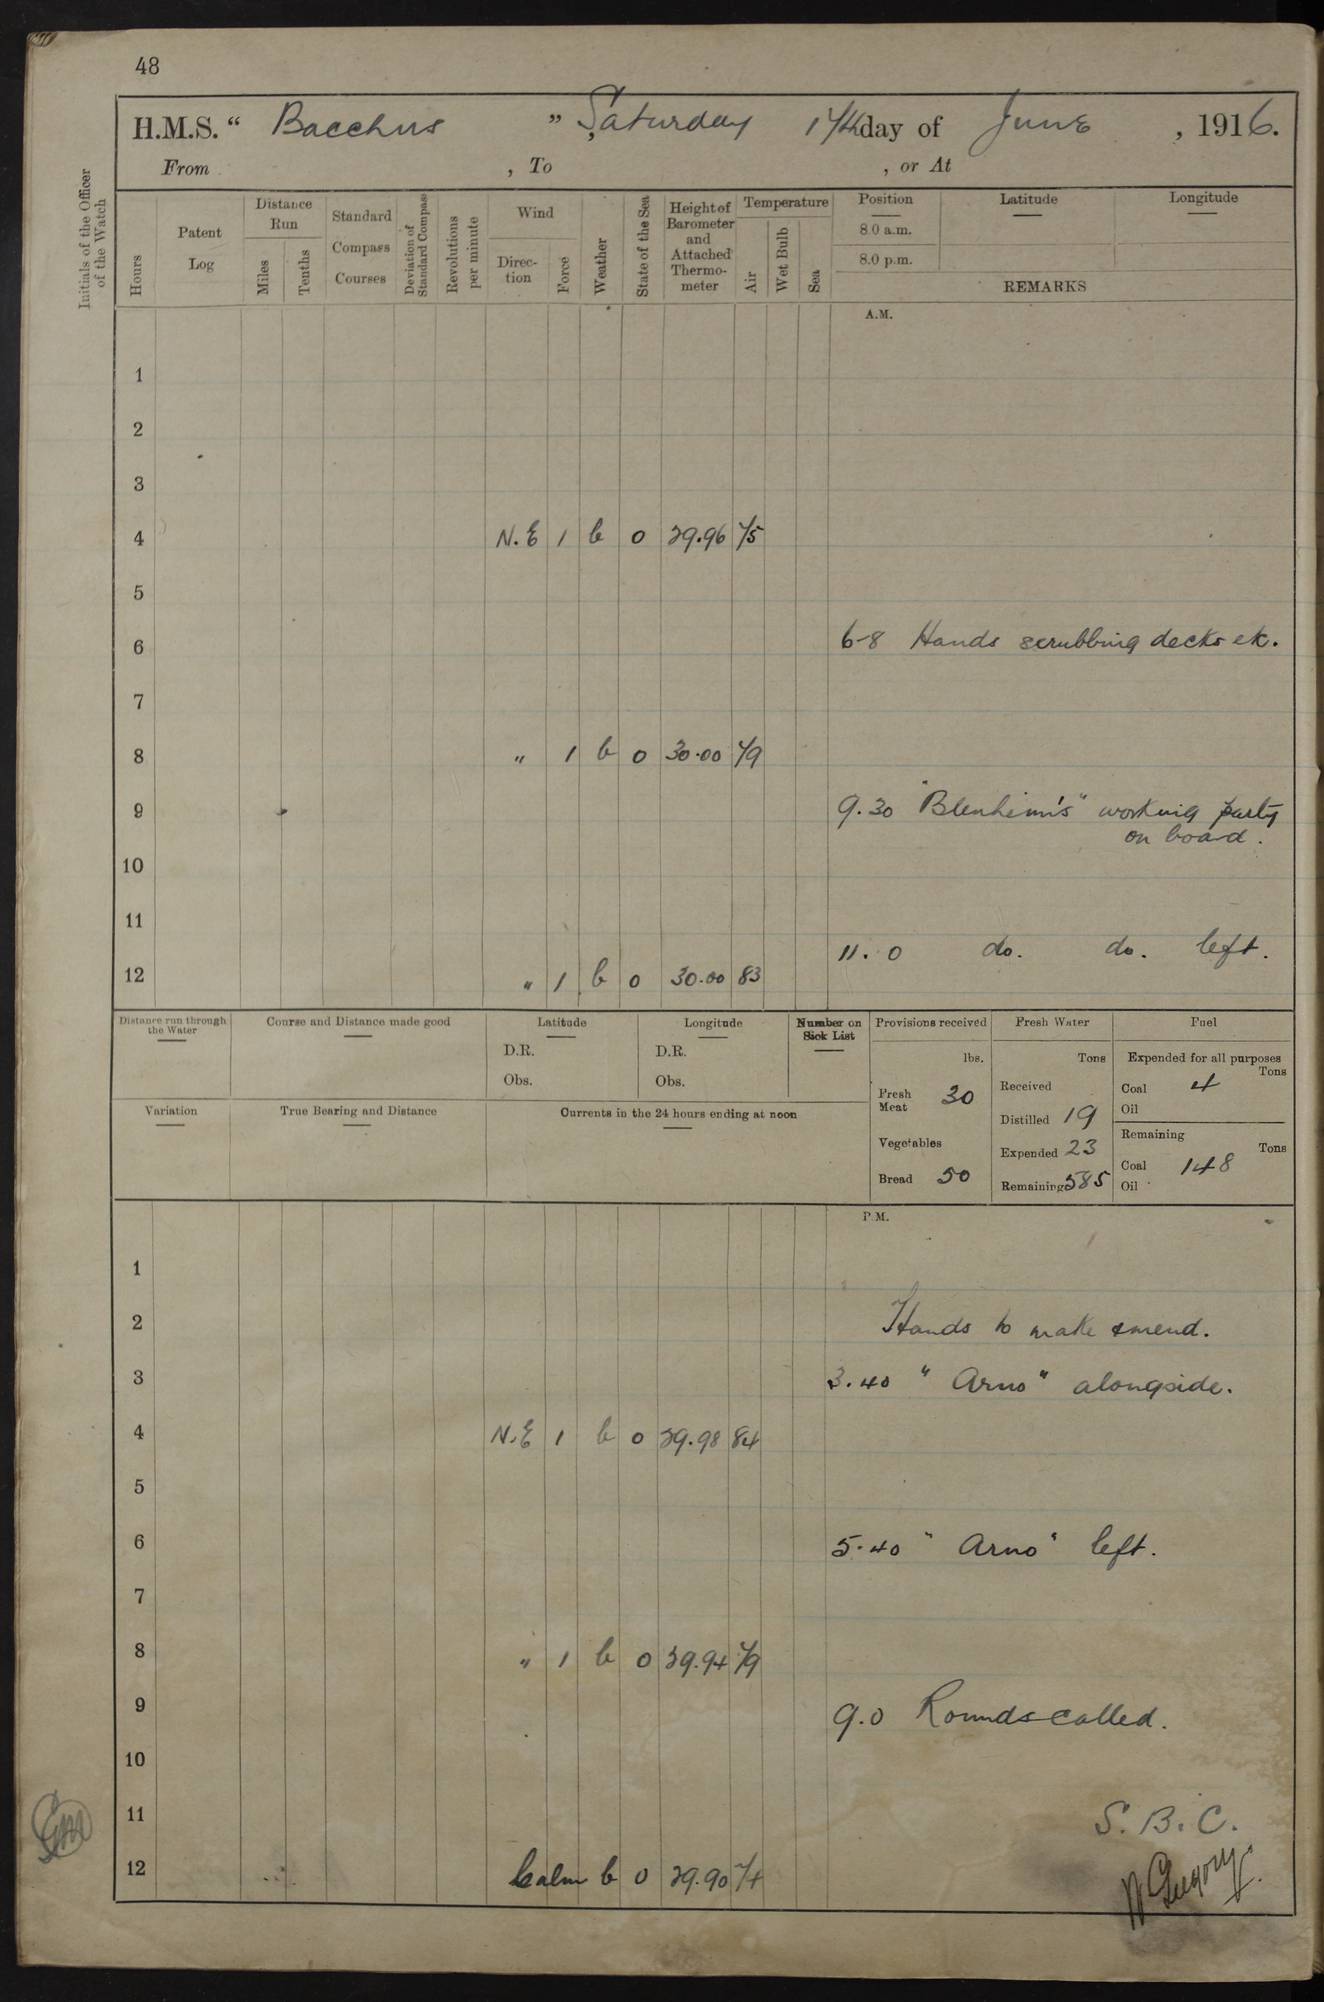 48
H.M.S. “ Bacchus ” , Saturday 17th day of June , 1916.
From , To , or At
Initials of the Officer of the Watch
Hours
Patent Log
Distance Run
Miles
Tenths
Standard Compass Courses
Deviation of Standard Compass
Revolutions per minute
Wind
Direction
Force
Weather
State of the Sea
Height of Barometer and Attached Thermometer
Temperature
Air
Wet Bulb
Sea
Position Latitude Longitude
8.0 a.m.
8.0 p.m.
REMARKS
A.M.
1
2
3
4 N.E 1 b 0 29.96 75
5
6 6-8 Hands scrubbing decks etc.
7
8 " 1 b 0 30.00 79
9 9.30 "Blenheim's" working party
on board.
10
11
11.0 do. do. left.
12 " 1 b 0 30.00 83
Distance run through the Water
Course and Distance made good
Latitude
D.R.
Obs.
Longitude
D.R.
Obs.
Number on Sick List
Provisions received
lbs.
Fresh Meat 30
Vegetables
Bread 50
Fresh Water
Tons
Received
Distilled 19
Expended 23
Remaining 585
Fuel
Expended for all purposes
Tons
Coal 4
Oil
Remaining
Tons
Coal 148
Oil
Variation
True Bearing and Distance
Currents in the 24 hours ending at noon
P.M.
1
2 Hands to make & mend.
3 3.40 "Arno" alongside.
4 N.E 1 b 0 29.98 84
5
6 5.40 "Arno" left.
7
8 " 1 b 0 29.94 79
9 9.0 Rounds called.
10
11 S.B.C.
12 Calm b 0 29.90 74
W Gregory.